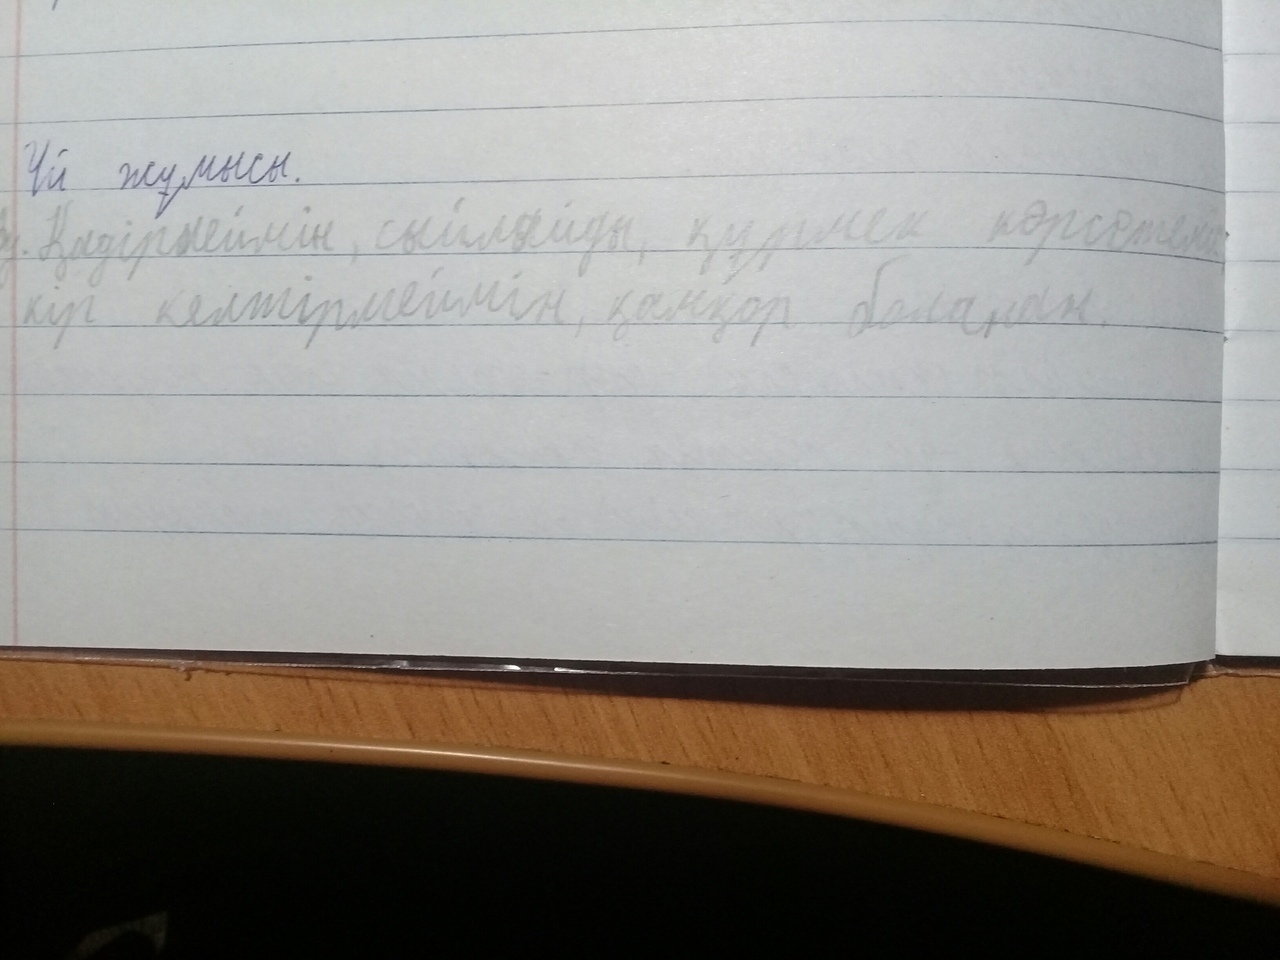 Үй жұмысы.
Қадірлеймін, сыйлайды, құрмет көрсетемін
кір келтірмеймін, қамқор боламан.